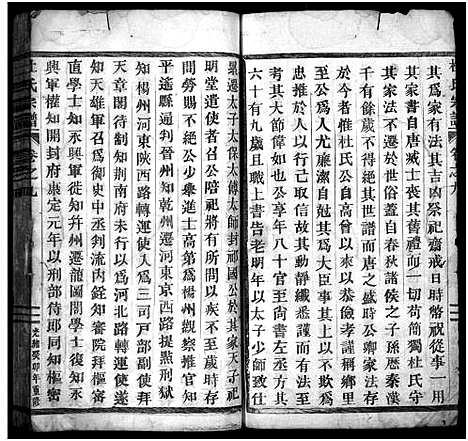 其爲家有法其吉凶祭祀齋戒日時幣祝從事一用
其家書自唐滅士喪其舊禮而一切苟簡獨杜氏守
其家法不遷於世俗蓋自春秋諸侯之子孫歷秦漢
千有餘歲得不絕其世譜而唐之盛時公卿家法存
於今者惟杜氏公自曾高以來以恭儉孝謹稱鄉里
至公爲人尤廉潔自克其爲大臣事其上以不欺爲
忠推於人以行己取信故其動靜纖悉謹而有法至
考其大節偉如也公享年八十官至尚書左丞方其
六十有九歲且盡即上書告老明年以太子少師致仕
累遷太子太保太傅太師封祁國公於其家天子祀
明堂遣使者召公陪祀將有所問以疾不至歲時存
問勞賜不絕公少舉進士高第爲楊州觀察推官知
平遙縣通判晉州知乾州遷河東京西路提點刑獄
知楊州河東陝西路轉運使入爲三司戶部副使拜
天章閣待制知荆南府未行以爲河北路轉運使召
知天雄軍召爲御史中丞判流內銓知審官院拜樞密
直學士知永興軍徙知幷州遷龍圖閣學士復知永
興軍權知開封府康定元年以刑部侍郎同知樞密
杜氏宗譜
卷之九
光緒癸卯年重修